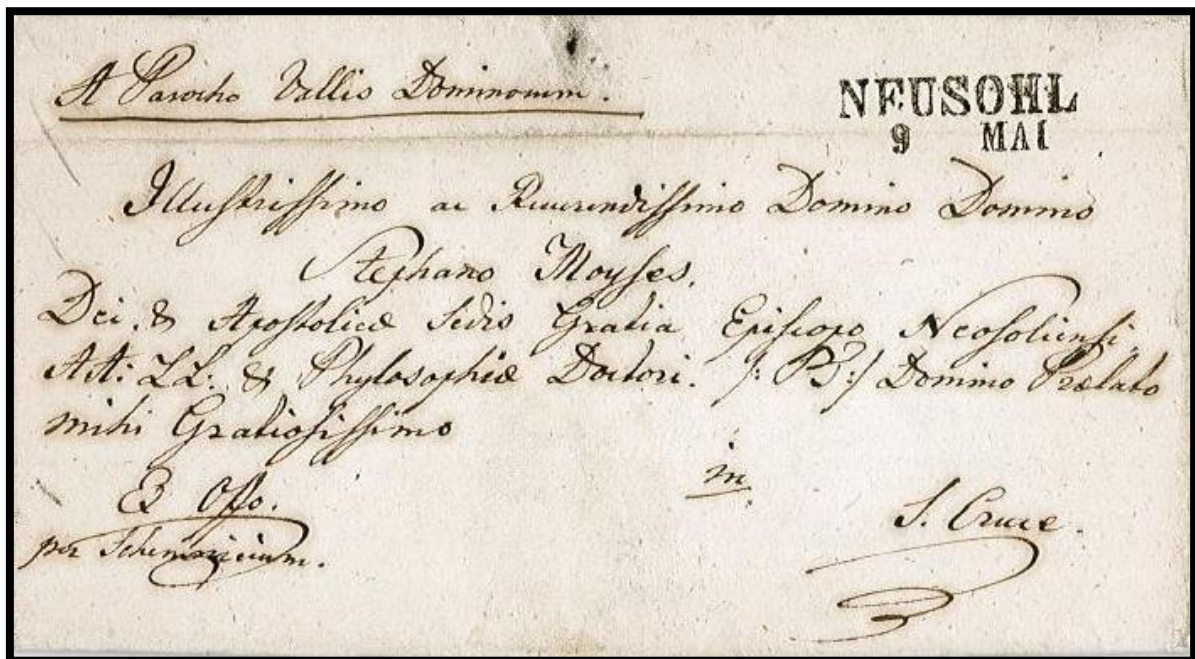 A Parocho Vallis Dominorum.
NEUSOHL
9 MAI
Illustrissimo ac Reverendissimo Domino Domino
Stephano Moyses.
Dei & Apostolicæ Sedis Gratia Episcopo Neosoliensi,
AA: LL: & Phylosophiæ Doctori. /: B :/ Domino Prælato
mihi Gratiosissimo
Ex Offo.
in
S. Cruce.
per Schemnicium.